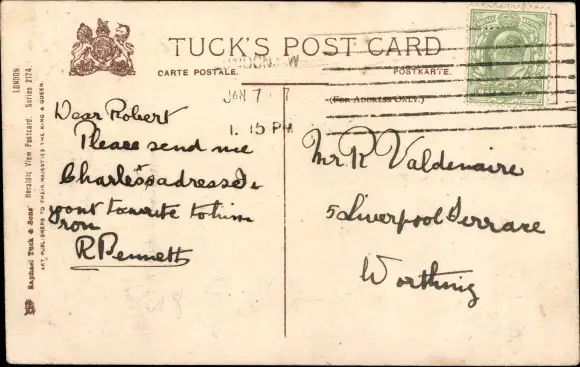 TUCK'S POST CARD
CARTE POSTALE.
POSTKARTE.
(FOR ADDRESS ONLY.)
LONDON. W
JAN 7
1. 15 PM
LONDON
Raphael Tuck & Sons' Heraldic View Postcard. Series 2174.
ART PUBLISHERS TO THEIR MAJESTIES THE KING & QUEEN.
Dear Robert
Please send me
Charles's adresse I
want to write to him
from
R Bennett
Mr R Valdenaire
5 Liverpool Terrace
Worthing